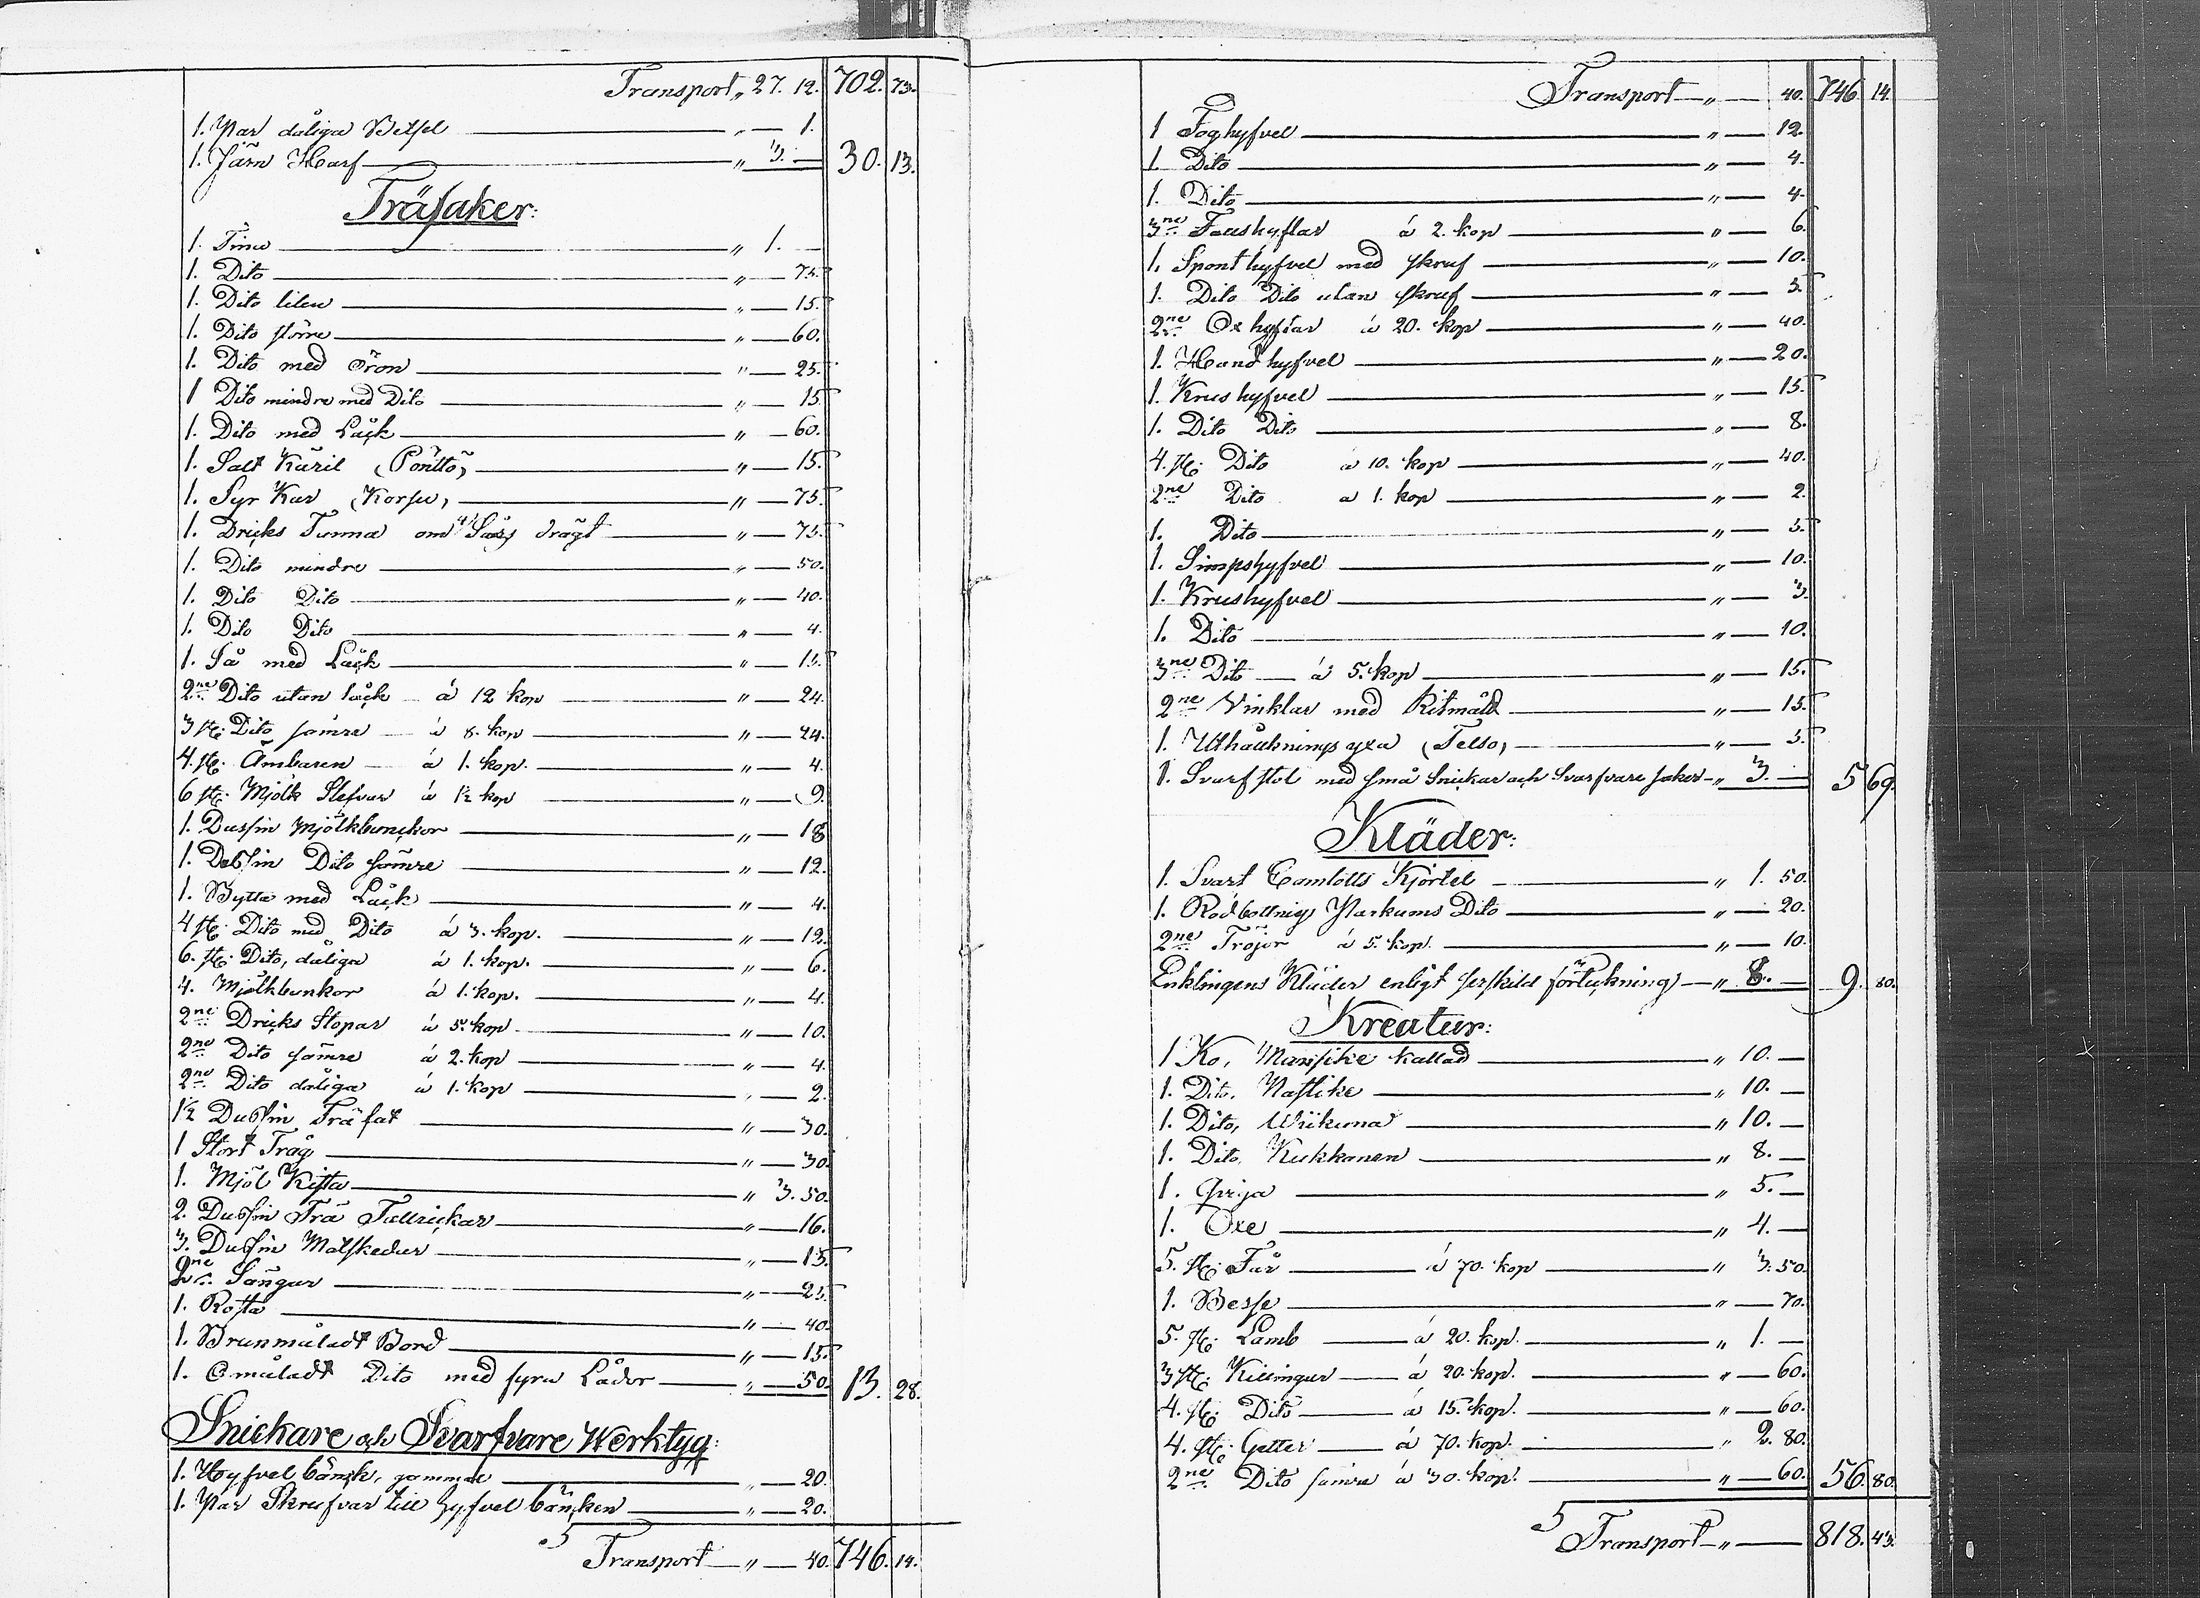 Transport „ 27. 12. 702. 73.
1. Par dåliga Betsel „ — 1.
1. Järn Harf „ 3. — 30. 13.
Träsaker:
1. Tina „ 1. —
1. Dito „ — 75.
1. Dito liten „ — 15.
1. Dito större „ — 60.
1. Dito med öron „ — 25.
1 Dito mindre med Dito „ — 15.
1. Dito med Låck „ — 60.
1. Salt Käril (Pönttö) „ — 15.
1. Syr Kar (Korsu) „ — 75.
1. Dricks Tunna om 4 Såsj drägt „ — 75.
1. Dito mindre „ — 50.
1. Dito Dito „ — 40.
1. Dito Dito „ — 4.
1. Så med Låck „ — 15.
2ne Dito utan låck á 12 kop „ — 24.
3 st: Dito sämre á 8. kop „ — 24.
4. st: Ämbaren á 1. kop. „ — 4.
6 st: Mjölk Stefvar á 1½ kop „ — 9.
1. Dussin Mjölkbunckor „ — 18
1. Dussin Dito sämre „ — 12.
1. Bytta med Låck „ — 4.
4 st: Dito med Dito á 3. kop. „ — 12.
6. st: Dito, dåliga á 1. kop. „ — 6.
4. Mjölkbunkor á 1. kop. „ — 4.
2ne Dricks Stopar á 5. kop „ — 10.
2ne Dito sämre á 2. kop „ — 4.
2ne Dito dåliga á 1. kop „ — 2.
1½ Dussin Träfat „ — 30.
1 Stort Tråg „ — 30.
1. Mjöl Kista „ 3. 50.
2. Dussin Trä Tallrickar „ — 16.
3. Dussin Matskedar „ — 15.
2ne Sängar „ — 25.
1. Rosta „ — 40.
1. Brunmåladt Bord „ — 15.
1. Omåladt Dito med fyra Lådor „ — 50. 13. 28.
Snickare och Svarfvare Werktyg:
1. Hyfvel bänck, gammal „ — 20.
1. Par Skrufvar till hyfvel bäncken „ — 20.
Transport „ — 40. 746. 14.
Transport „ — 40. 746. 14.
1 Foghyfvel „ — 12.
1. Dito „ — 4.
1. Dito „ — 4.
3ne Falshyflar á 2. kop „ — 6.
1. Sponthyfvel med skruf „ — 10.
1. Dito Dito utan skruf „ — 5.
2ne Oxhyflar á 20. kop „ — 40.
1. Hand hyfvel „ — 20.
1. Krushyfvel „ — 15.
1. Dito Dito „ — 8.
4. st: Dito á 10. kop „ — 40.
2ne Dito a 1. kop „ — 2.
1. Dito „ — 5.
1. Simpshyfvel „ — 10.
1. Krushyfvel „ — 3.
1. Dito „ — 10.
3ne Dito á 5. kop „ — 15.
2ne Vinklar med Ritmått „ — 15.
1. Uthåckningsyxa (Telso) „ — 5.
1. Svarfstol med små Snickar och Svarfvare saker „ 3. — 5 69.
Kläder:
1. Svart Camlotts Kjortel „ 1. 50.
1. Rödbottnig Parkums Dito „ — 20.
2ne Tröjor á 5. kop. „ — 10.
Enklingens Kläder enligt serskild förtekning „ 8. — 9. 80.
Kreatur:
1 Ko, Mansike kallad „ 10. —
1. Dito, Mastike „ 10. —
1. Dito, Wiikuna „ 10. —
1. Dito, Kukkonen „ 8. —
1. Qviga „ 5. —
1. Oxe „ 4. —
5. st: Får á 70. kop „ 3. 50.
1. Besse „ — 70.
5. st: Lamb á 20. kop. „ 1. —
3 st: Killingar á 20. kop. „ — 60.
4. st: Dito á 15. kop. „ — 60.
4. st: Getter á 70. kop. „ 2. 80.
2ne Dito sämre á 30. kop. „ — 60. 56. 80.
Transport „ — 818. 43.